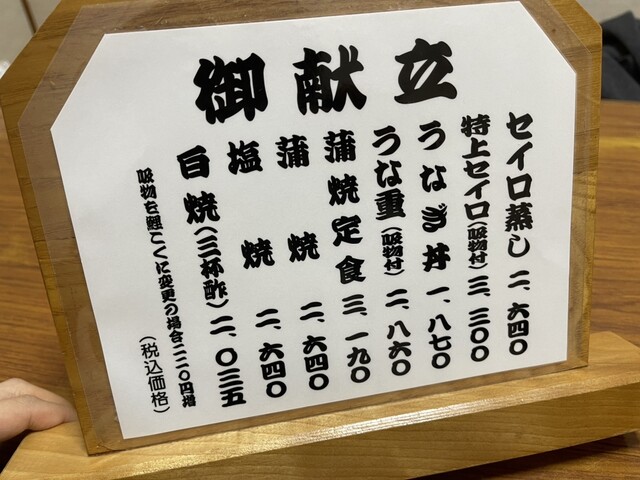 御献立
セイロ蒸し 二、六四〇
特上セイロ(吸物付) 三、三〇〇
うなぎ丼 一、八七〇
うな重(吸物付) 二、八六〇
蒲焼定食 三、一九〇
蒲焼 二、六四〇
塩焼 二、六四〇
白焼(三杯酢) 二、〇三五
吸物を鯉こくに変更の場合二二〇円増
(税込価格)